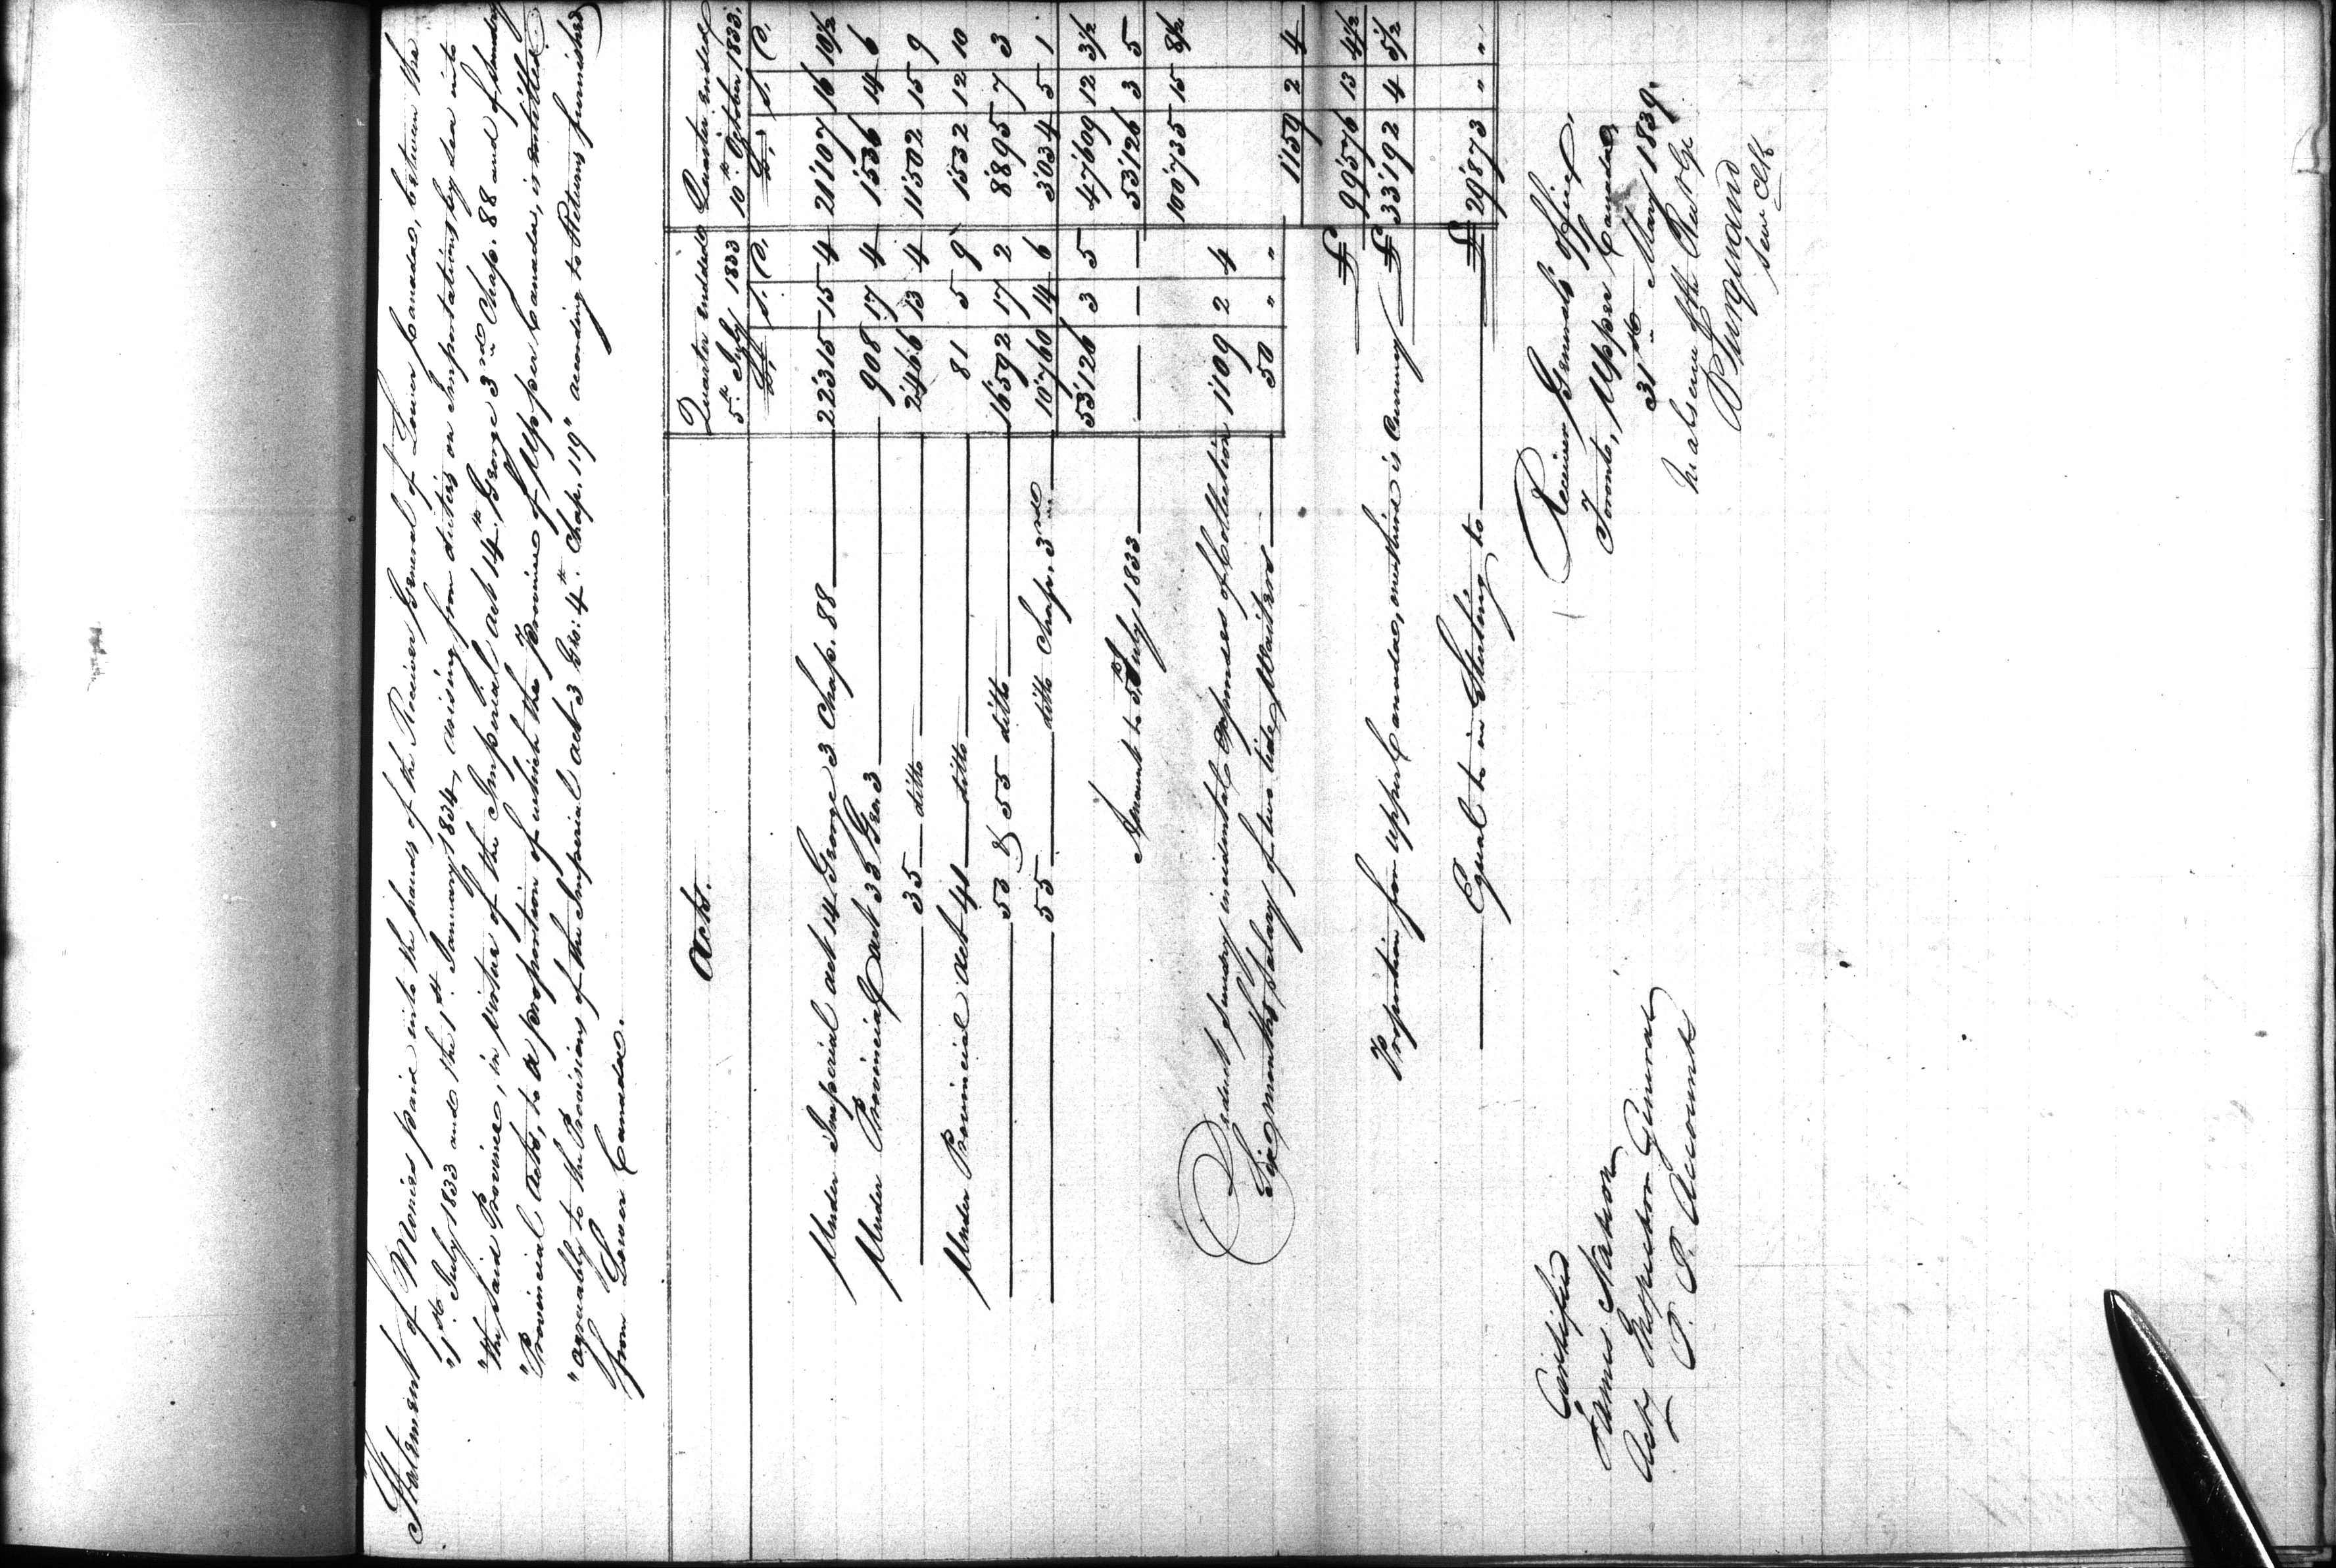 Statement of Monies paid into the hands of the Receiver General of Lower Canada, between the
"1st July 1833 and the 1st January 1834, arising from duties on Importations by sea into
"the said Province, in virtue of the Imperial act 14th George 3rd Chap. 88 and of sundry
"Provincial Acts, to a proportion of which the Province of Upper Canada, is entitled
"agreeably to the Provisions of the Imperial act 3 Geo: 4th Chap. 119" according to Returns furnished
from Lower Canada.
Acts. Quarter ended 5th July 1833 Quarter ended 10th October 1833.
£ S. D. £ S. D.
Under Imperial act 14 George 3 Chap. 88 22315 15 4 21107 16 10½
Under Provincial act 33 Geo 3 908 17 4 1536 14 6
35 ditto 2466 13 4 11502 15 9
Under Provincial act 41 ditto 81 5 9 1532 12 10
53 & 55 ditto 16592 17 2 8895 7 3
55 ditto Chap. 3rd 10760 14 6 3034 5 1
53126 3 5 47609 12 3½
Amount to 5th July 1833 53126 3 5
100735 15 8½
Deduct Sundry incidental expenses of Collection 1109 2 4
Six months Salary of two tide Waiters 50 " " 1159 2 4
£ 99576 13 4½
Proportion for Upper Canada, one third is Currency £ 33192 4 5½
Equal to in Sterling to £ 29873 " "
Receiver General's Office,
Toronto, Upper Canada,
31st May 1839.
In absence of the Recr Gl
B Turquand
Senr Clk
Certified
James Nation
Actg Inspector General
P. P. Accounts